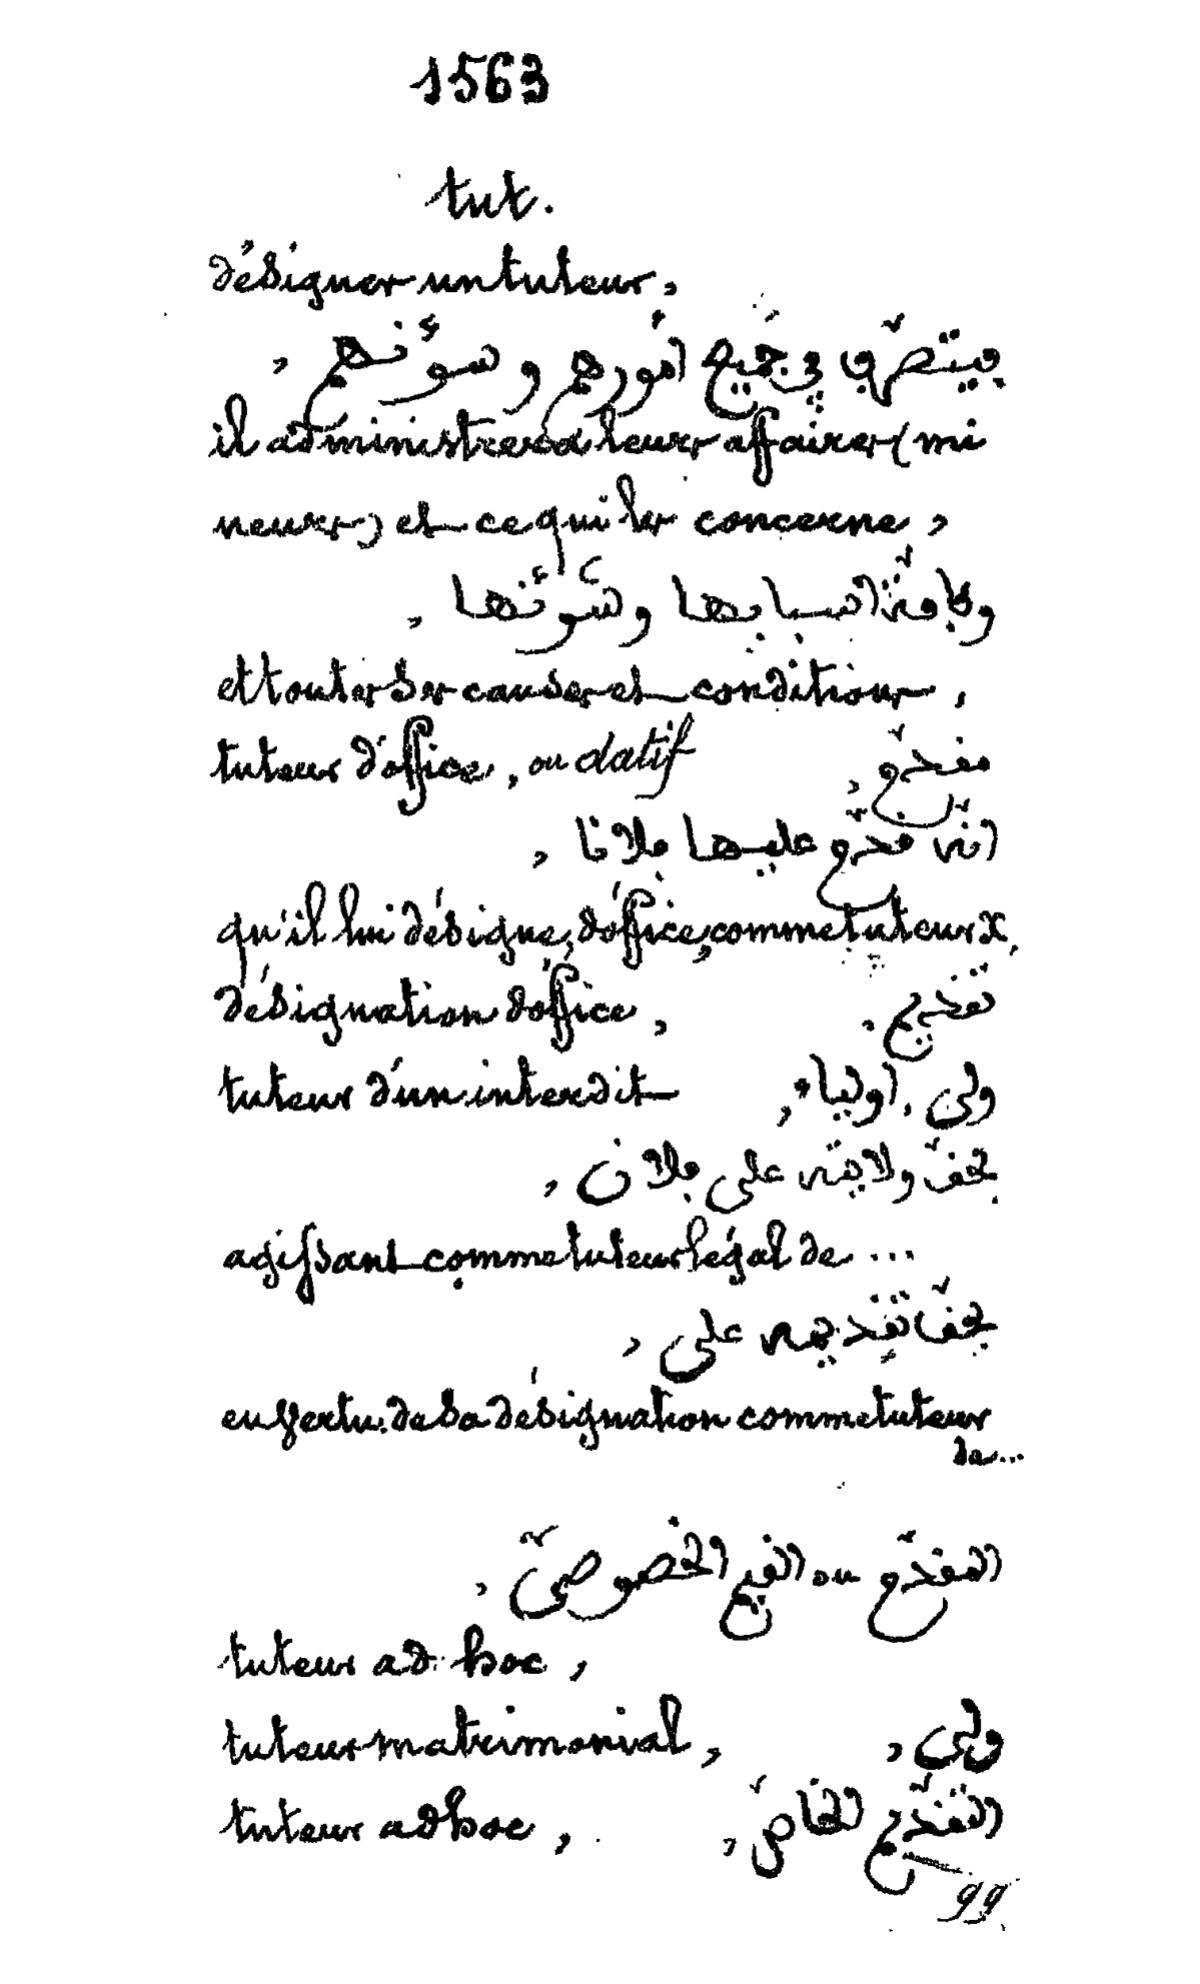 1563
tut.
désigner un tuteur,
فيتصرّف في جميع أمورهم وشؤنهم,
il administrera leurs affaires (mi
neurs) et ce qui les concerne,
وكافّة اسبابها وشؤنها,
et toutes ses causes et conditions,
tuteur d'office, ou datif مقدّم,
انّه قدّم عليها فلانا,
qu'il lui désigne, d'office, comme tuteur X,
désignation d'office, تقديم,
tuteur d'un interdit ولي, اولياء,
بحقّ ولايته على فلان,
agissant comme tuteur légal de ...
بحقّ تقديمه على,
en vertu de sa désignation comme tuteur
de...
المقدّم ou القيم الخصوصيّ,
tuteur ad hoc,
tuteur matrimonial, ولي,
tuteur ad hoc, التقديم الخاصّ,
gg